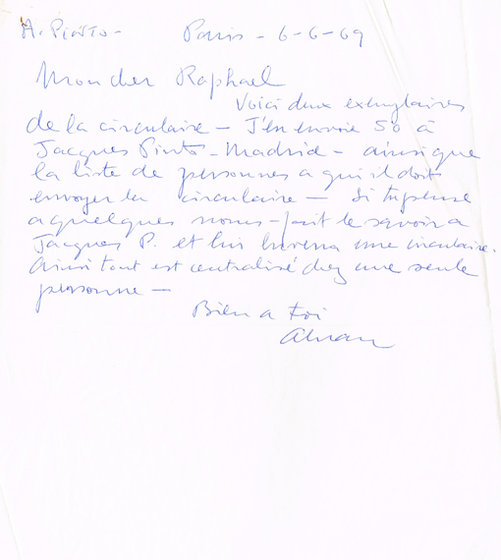 A. Pinto - Paris - 6-6-69
Mon cher Raphael
Voici deux exemplaires
de la circulaire - J'en envoie 50 à
Jacques Pinto - Madrid - ainsi que
la liste de personnes a qui il doit
envoyer la circulaire - Si tu pense
a quelques noms - fait le savoir a
Jacques P. et lui enverra une circulaire.
Ainsi tout est centralisé chez une seule
personne -
Bien a toi